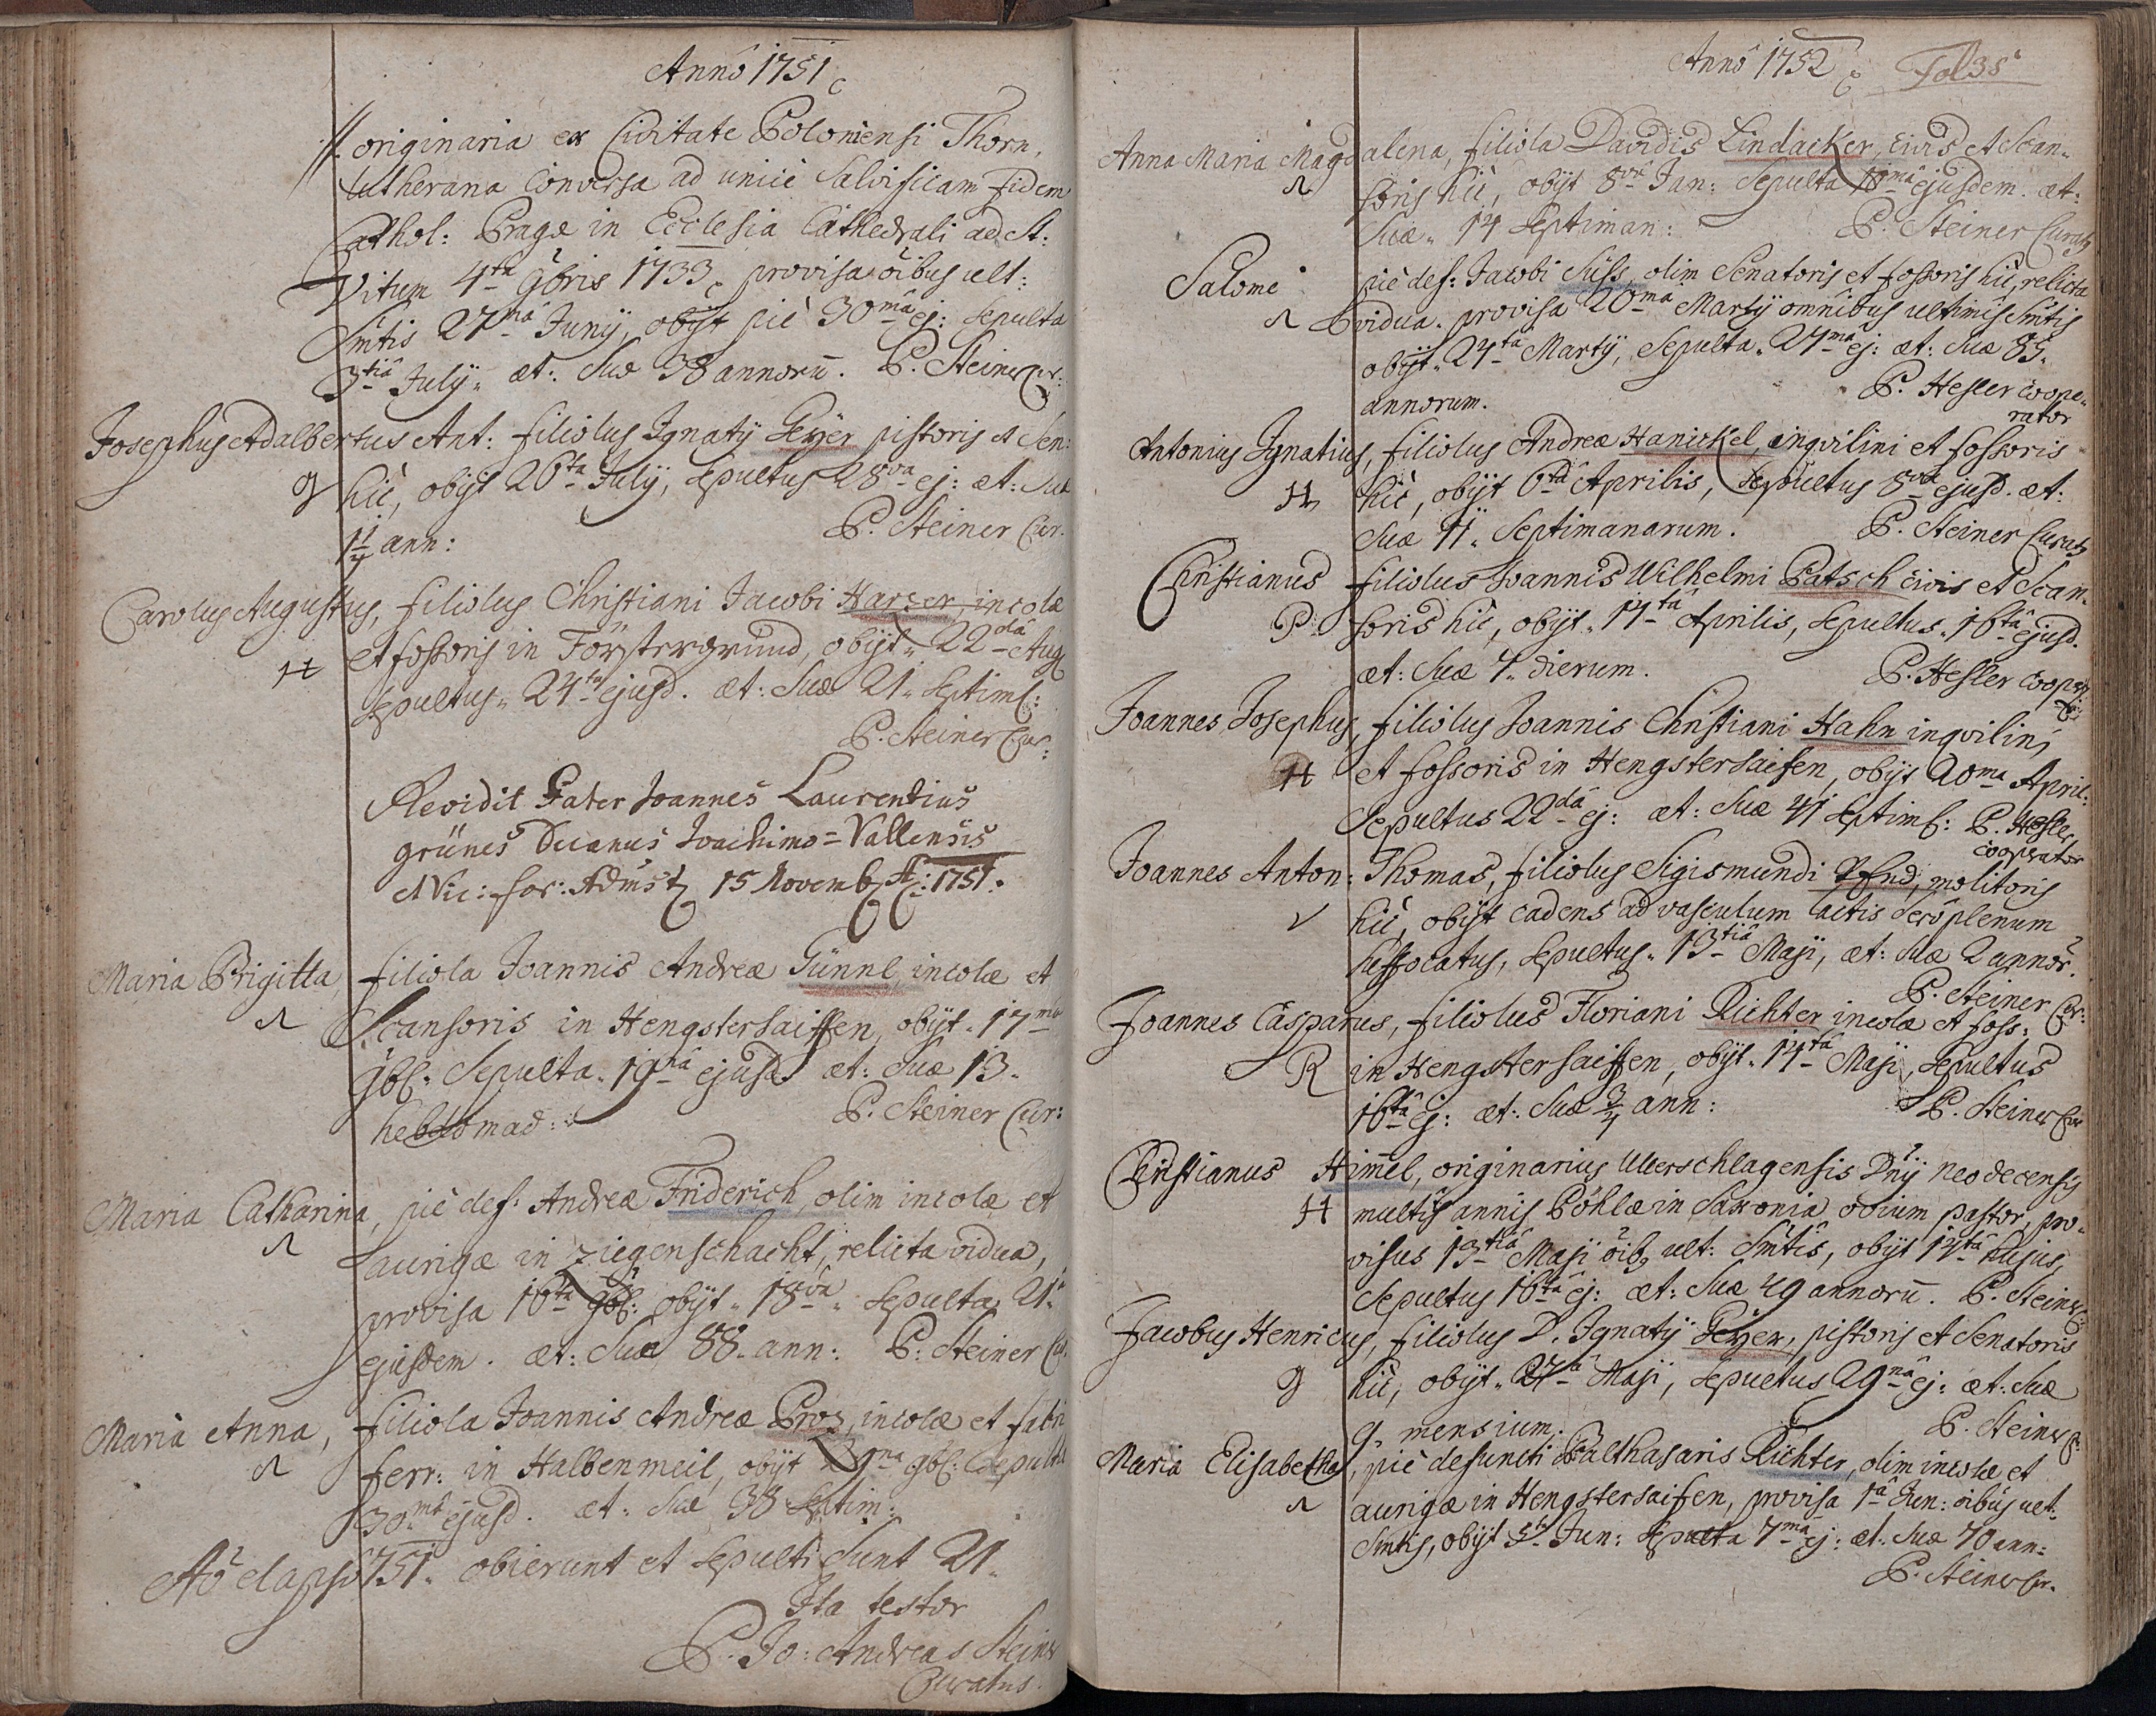 Anno 1751
//. originaria ex Civitate Poloniensi Thorn,
Lutherana Conversa ad unice Salvificam fidem
Cathol: Pragæ in Ecclesia Cathedrali ad St:
Vitum 4ta 9bris 1733, provisa oibus ult:
Smtis 27mâ Junÿ, obÿt piè 30mâ ej: Sepulta
3tiâ Julÿ. æt: Suæ 38 annorū. P. Steiner Cur:
Josephus Adalbertus Ant: filiolus Ignatÿ Geÿer pistoris et Sen:
g hic, obÿt 26ta Julÿ, Sepultus 28va ej: æt: Suæ
1 1/4 ann: P. Steiner Cur.
Carolus Augustus, filiolus Christiani Jacobi Harzer, incolæ
H et fossoris in Förstergrund, obÿt 22dâ Aug
sepultus 24ta ejusd. æt: Suæ 21 Septim:
P. Steiner Cur:
Revidit Pater Joannes Laurentius
grünes Decanus Joachimo=Vallensis
et Vic: for: 15 Novemb A: 1751.
Maria Brigitta, filiola Joannis Andreæ Günnl, incolæ et
Scansoris in Hengstersaiffen, obÿt 17mâ
9b: Sepulta 19nâ ejusd. æt: Suæ 13
hebdomad: P. Steiner Cur:
Maria Catharina, piè def: Andreæ Friderich, olim incolæ et
aurigæ in Ziegenschacht, relicta vidua,
provisa 16ta 9b: obÿt 18vâ Sepulta 21
ejusdem. æt: Suæ 88 ann: P. Steiner Cur.
Maria Anna, filiola Joannis Andreæ Proz, incolæ et fabri
ferr: in Halbenmeil, obÿt 29na 9b: Sepulta
30mâ ejusd. æt: Suæ 38 Septim:
Aõ elapso 1751. obierunt et Sepulti Sunt 21.
Ita testor
P. Jo: Andreas Steiner
Curatus.
Anno 1752 Fol 35
Anna Maria Magdalena, filiola Davidis Lindacker, civis et Scan-
soris hic, obÿt 8vâ Jan: Sepulta 10mâ ejusdem. æt:
Suæ 14 Septiman: P. Steiner Curatg
Salome piè def: Jacobi Süss, olim Senatoris et fossoris hic, relicta
vidua. provisa 20mâ Martÿ omnibus ultimis Smtis
obÿt 24ta Martÿ, Sepulta 27mâ ej: æt: Suæ 85
annorum. P. Hesler coope-
rator
Antonius Ignatius, filiolus Andreæ Hanickel, inqvilini et fossoris
H hic, obÿt 6ta Aprilis, Sepultus 8va ejusd. æt:
Suæ 11 Septimanarum. P. Steiner Curatg
Christianus filiolus Joannis Wilhelmi Patsch civis et Scan-
P soris hic, obÿt 14ta Aprilis, Sepultus 16ta ejusd.
æt: Suæ 4 dierum. P. Hesler cooper
Joannes Josephus, filiolus Joannis Christiani Hahn inqvilini
H et fossoris in Hengstersaifen, obÿt 20ma April:
Sepultus 22dâ ej: æt: Suæ 41 Septim: P. Hesler
cooperator
Joannes Anton: Thomas, filiolus Sigismundi, molitoris
hic, obÿt cadens ad vasculum lactis sero plenum
suffocatus, Sepultus 13tiâ Maji, æt: Suæ 2 annor.
P. Steiner Cur:
Joannes Casparus, filiolus Floriani Richter incolæ et foss:
R in Hengstersaiffen, obÿt 14ta Maji, Sepultus
16tâ ej: æt: Suæ 3/4 ann: P. Steiner Cur
Christianus Himmel, originarius Ullerschlagensis Dnÿ neodecensis
H multis annis Pöhlæ in Saxonia ovium pastor, pro-
visus 13tiâ Maji oib9 ult: Smtis, obÿt 14tâ hujus,
Sepultus 16tâ ej: æt: Suæ 49 annorū. P. Steiner C:
Jacobus Henricus, filiolus D. Ignatÿ Geÿer, pistoris et Senatoris
g hic, obÿt 27â Maji, Sepultus 29nâ ej: æt: Suæ
9 mensium. P. Steiner C:
Maria Elisabetha, piè defuncti Balthasaris Richter, olim incolæ et
aurigæ in Hengstersaifen, provisa 1â Jun: oibus ult:
Smtis, obÿt 5ta Jun: Sepulta 7mâ ej: æt: Suæ 70 ann:
P. Steiner Cur.